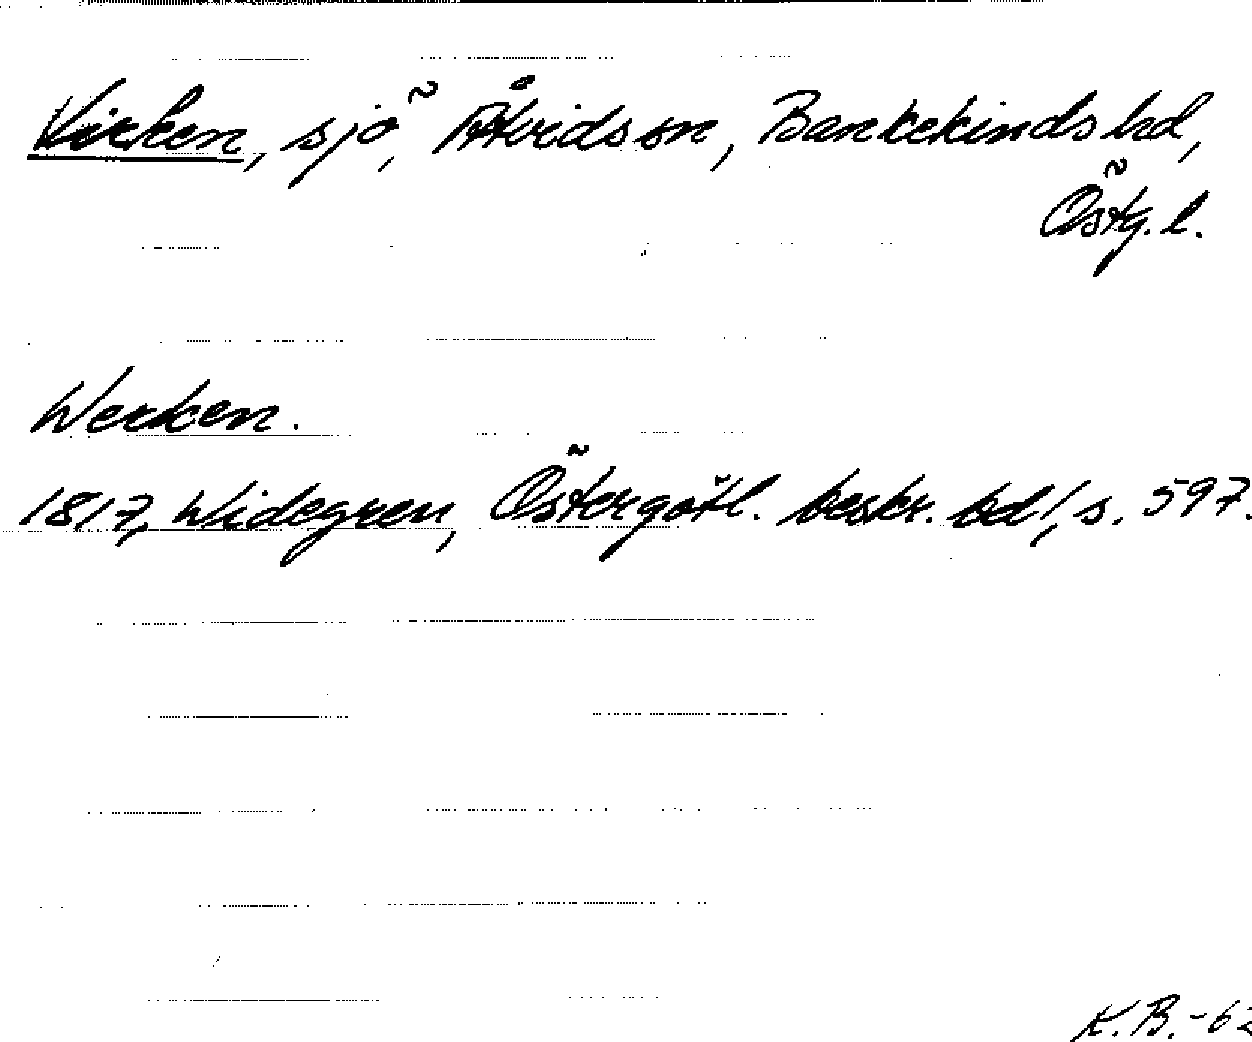 Virken, sjö, Åtvids sn, Bankekinds hd,
Östg. l.
Werken.
1817, Widegren, Östergötl. beskr. bd 1, s. 597.
K.B.-62